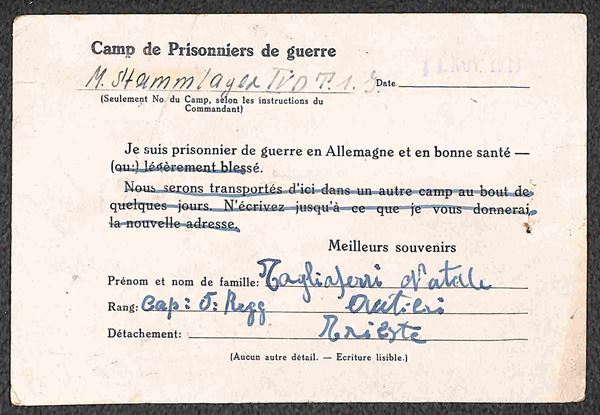 Camp de Prisonniers de guerre
M. Stammlager IV D T. 1. 3. Date
(Seulement No. du Camp, selon les instructions du
Commandant)
Je suis prisonnier de guerre en Allemagne et en bonne santé —
(ou:) légèrement blessé.
Nous serons transportés d'ici dans un autre camp au bout de
quelques jours. N'écrivez jusqu'à ce que je vous donnerai
la nouvelle adresse.
Meilleurs souvenirs
Prénom et nom de famille: Tagliaferri Natale
Rang: Cap:
Détachement: Trieste
(Aucun autre détail. — Ecriture lisible.)